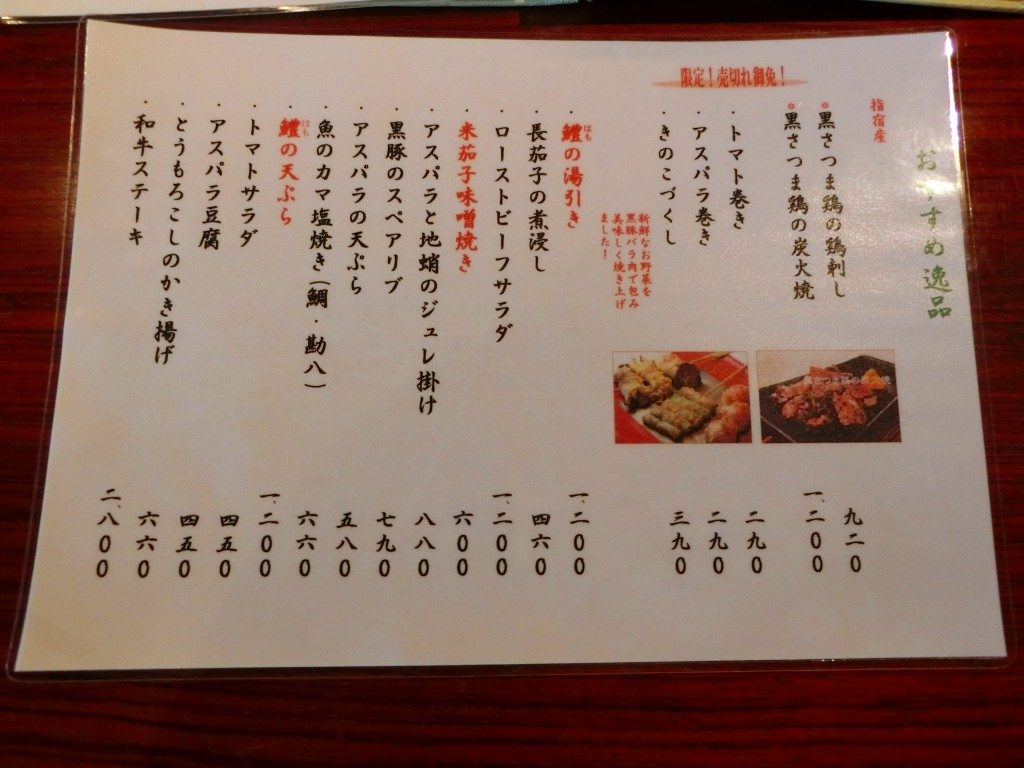 おすすめ逸品
指宿産
・黒さつま鶏の鶏刺し 九二〇
・黒さつま鶏の炭火焼 一、二〇〇
限定！売切れ御免！
・トマト巻き 二九〇
・アスパラ巻き 二九〇
・きのこづくし 三九〇
新鮮なお野菜を
黒豚バラ肉で包み
美味しく焼き上げ
ました！
・鱧の湯引き 一、二〇〇
はも
・長茄子の煮浸し 四六〇
・ローストビーフサラダ 一、二〇〇
・米茄子味噌焼き 六〇〇
・アスパラと地蛸のジュレ掛け 八八〇
・黒豚のスペアリブ 七九〇
・アスパラの天ぷら 五八〇
・魚のカマ塩焼き（鯛・勘八） 六六〇
・鱧の天ぷら 一、二〇〇
はも
・トマトサラダ 四五〇
・アスパラ豆腐 四五〇
・とうもろこしのかき揚げ 六六〇
・和牛ステーキ 二、八〇〇